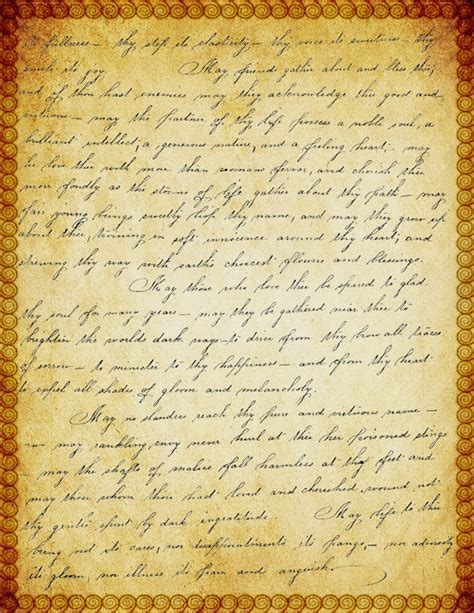 its fullness — thy step its elasticity — thy voice its sweetness — thy
smile its joy. May friends gather about and bless thee,
and if thou hast enemies may they acknowledge thee good and
virtuous — may the partner of thy life possess a noble soul, a
brilliant intellect, a generous nature, and a feeling heart; may
he love thee with more than womans fervor, and cherish thee
more fondly as the storms of life gather about thy path — may
fair young beings sweetly lisp thy name, and may they grow up
about thee, twining in soft innocence around thy heart, and
strewing thy way with earths choicest flowers and blessings.
May those who love thee be spared to glad
thy soul for many years — may they be gathered near thee to
brighten the worlds dark ways — to drive from thy brow all traces
of sorrow — to minister to thy happiness — and from thy heart
to expel all shades of gloom and melancholy.
May no slanders reach thy pure and virtuous name —
— may rankling envy never hurl at thee her poisoned stings
— may the shafts of malice fall harmless at thy feet and
may those whom thou hast loved and cherished wound not
thy gentle spirit by dark ingratitude. May life to thee
bring not its cares, nor disappointments its pangs, — nor adversity
its gloom, nor illness its pain and anguish.